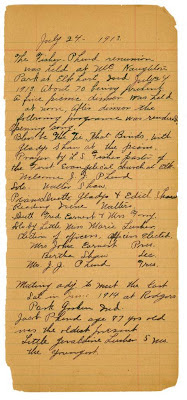 July 24 - 1913
The Fisher - Phend reunion
was held at Mc Naughton
Park at Elkhart, Ind July 24
1913. About 70 being present
A fine picnic dinner was held
at noon, after dinner the
following programe was rendered
Opening song
Blest Be The Tie That Binds, with
Gladys Shaw at the piano.
Prayer by L. S. Fisher pastor of
the First Evangelical Church at
Welcome J. J. Phend
Solo Nellie Shaw
Piano Duett Gladys & Edith Shaw
Reading Irene Nellie
Duett Prof. Earnest & Mrs Frey.
Solo by Little Miss Marie Linton
Election of officers. Officers Elected
Mrs John Earnest Pres.
Bertha Shaw Sec
Mr. J. J. Phend Tres.
Meeting adj to meet the last
Sat in June 1914 at Rodgers
Park Goshen Ind
Jacob Phend age 87 yrs old
was the oldest present
Little Geraldine Linton 5 mos
the youngest.